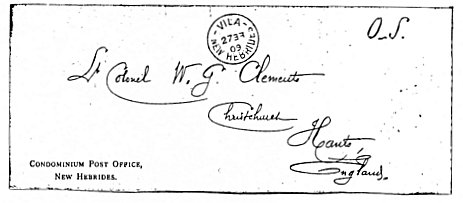 VILA
09
NEW HEBRIDES
O.S.
Lt Colonel W. G. Clements
Christchurch
Hants,
England.
CONDOMINIUM POST OFFICE,
NEW HEBRIDES.